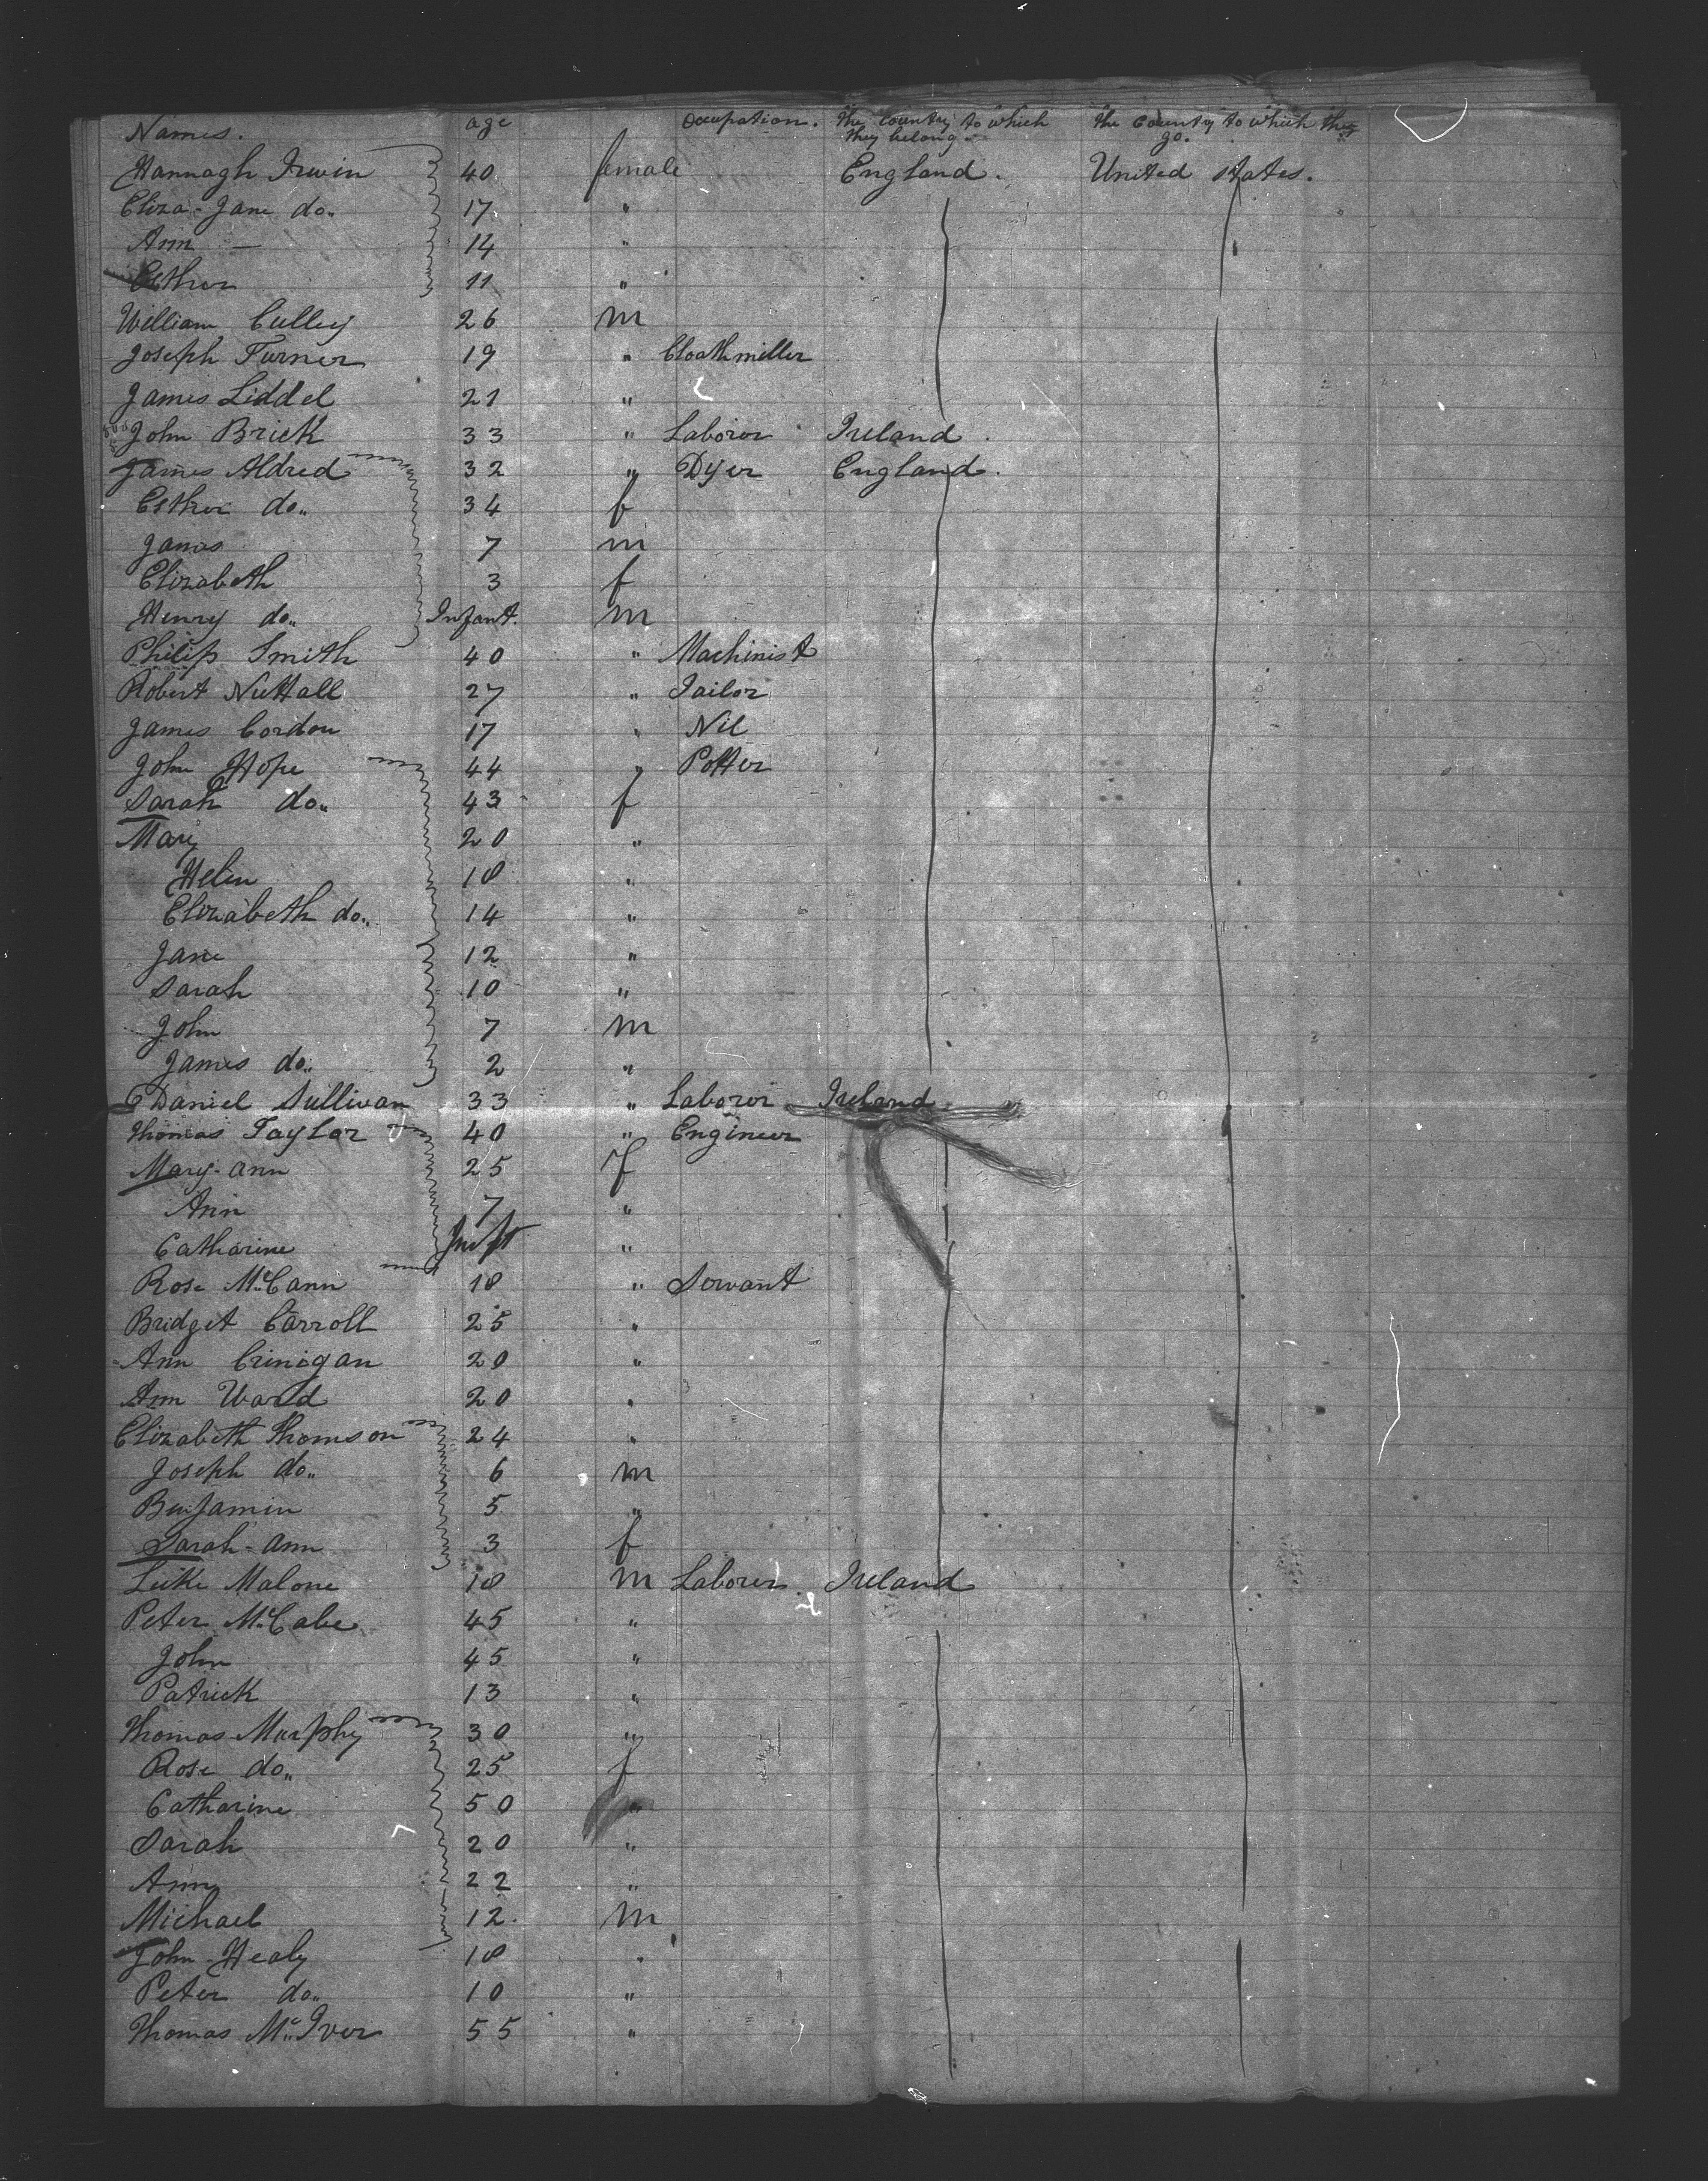 Names. age Occupation. the country to which they belong. the country to which they go.
Hannagh Irwin 40 female England. United States.
Eliza-Jane do.. 17 "
Ann — 14 "
Esther 11 "
William Culley 26 m
Joseph Turner 19 " Cloathmiller
James Liddel 21 "
John Brick 33 " Laborer Ireland
James Aldred 32 " Dyer England.
Esther do.. 34 f
James 7 m
Elizabeth 3 f
Henry do.. Infant. m
Philip Smith 40 " Machinist
Robert Nuttall 27 " Tailor
James Cordon 17 " Nil
John Hope 44 " Potter
Sarah do.. 43 f
Mary 20 "
Helen 18 "
Elizabeth do.. 14 "
Jane 12 "
Sarah 10 "
John 7 m
James do.. 2 "
Daniel Sullivan 33 " Laborer Ireland
Thomas Taylor 40 " Engineer
Mary-ann 25 f
Ann 7 "
Catharine Inft "
Rose McCann 18 " Servant
Bridget Carroll 25 "
Ann Crinigan 20 "
Ann Ward 20 "
Elizabeth Thomson 24 "
Joseph do.. 6 m
Benjamin 5 "
Sarah-ann 3 f
Luke Malone 18 m Laborer Ireland
Peter McCabe 45 "
John 45 "
Patrick 13 "
Thomas Murphy 30 "
Rose do.. 25 f
Catharine 50 "
Sarah 20 "
Ann 22 "
Michael 12. m
John Healy 18 "
Peter do.. 10 "
Thomas McIver 55 "